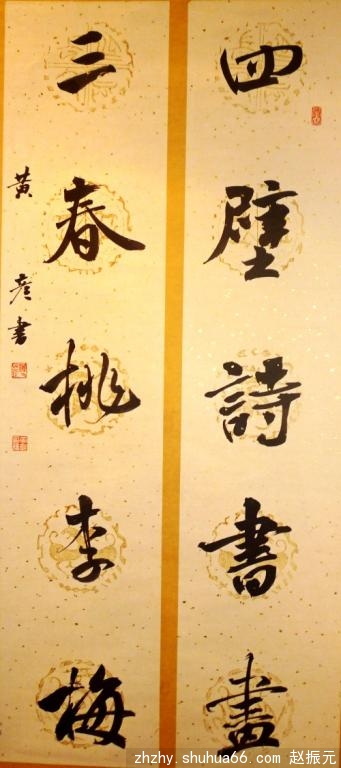 四壁詩書畫
三春桃李梅
黄彦書
zhzhy.shuhua66.com 赵振元